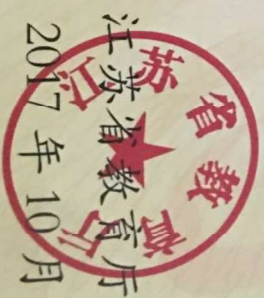 江苏省教育厅
2017年10月
江苏省教育厅